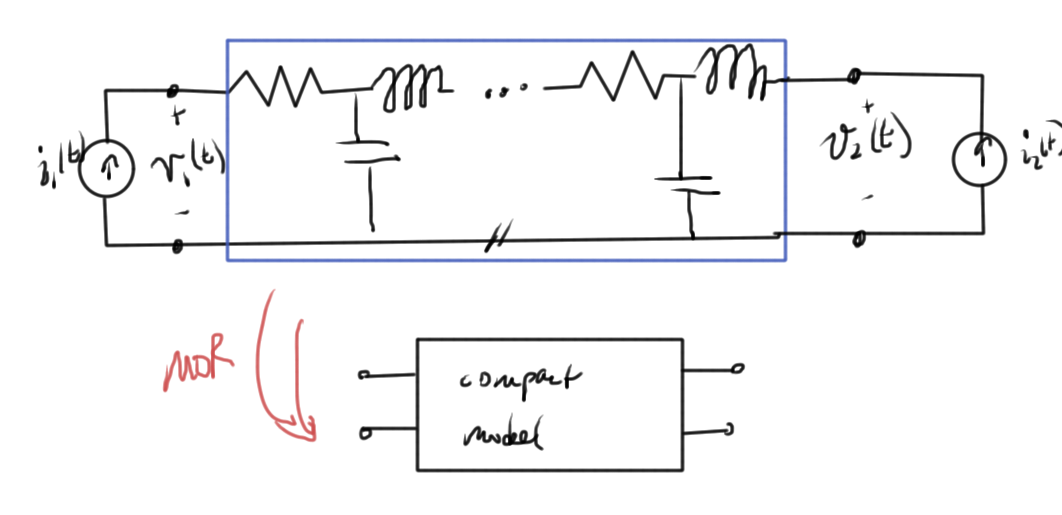 i₁(t)
+
v₁(t)
-
...
+
v₂(t)
-
i₂(t)
MOR
compact
model